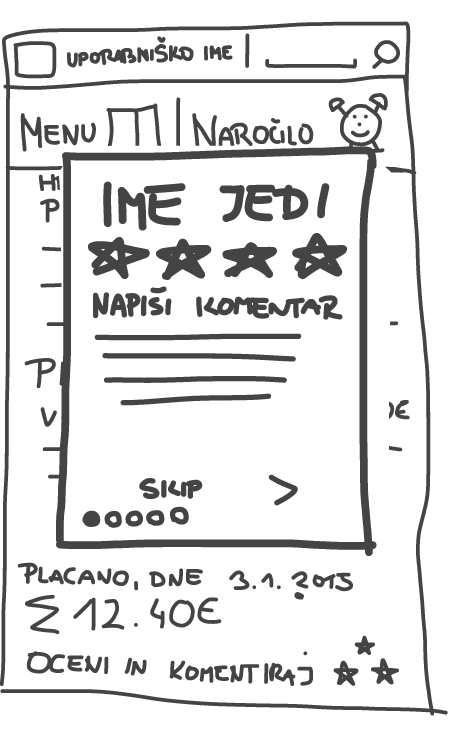 UPORABNIŠKO IME
MENU | NAROČILO
P
IME JEDI
NAPIŠI KOMENTAR
P
V
SKIP >
PLAČANO, DNE 3.1.2015
Σ 12.40€
OCENI IN KOMENTIRAJ